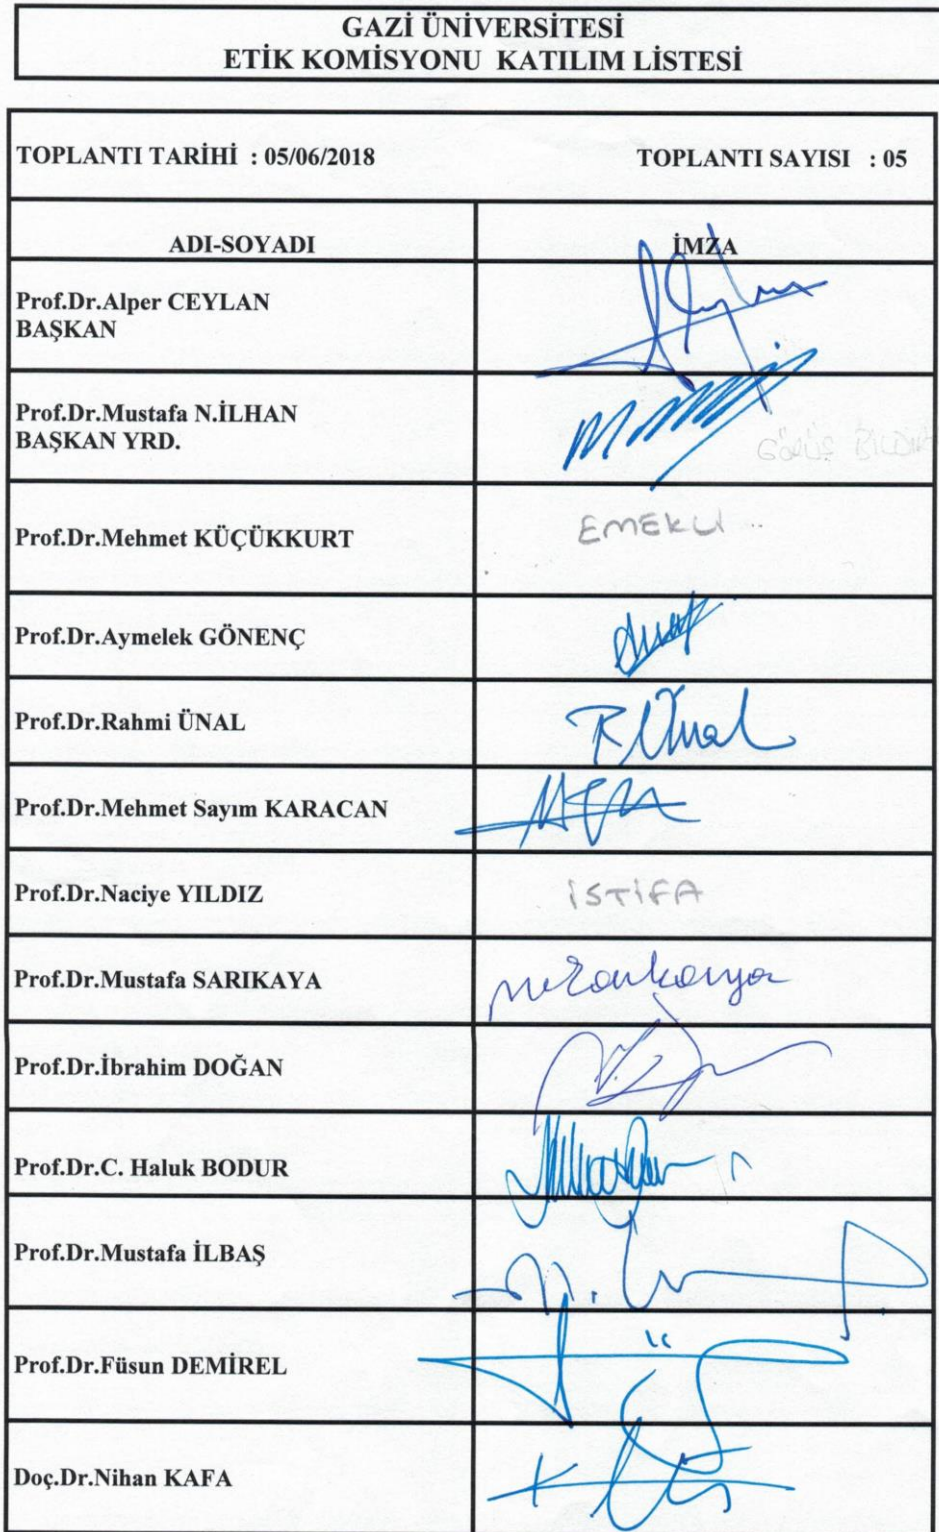 GAZİ ÜNİVERSİTESİ
ETİK KOMİSYONU KATILIM LİSTESİ
TOPLANTI TARİHİ : 05/06/2018 TOPLANTI SAYISI : 05
ADI-SOYADI İMZA
Prof.Dr.Alper CEYLAN
BAŞKAN
Prof.Dr.Mustafa N.İLHAN
BAŞKAN YRD.
GÖRÜŞ
Prof.Dr.Mehmet KÜÇÜKKURT EMEKLİ
Prof.Dr.Aymelek GÖNENÇ
Prof.Dr.Rahmi ÜNAL R Ünal
Prof.Dr.Mehmet Sayım KARACAN
Prof.Dr.Naciye YILDIZ İSTİFA
Prof.Dr.Mustafa SARIKAYA
Prof.Dr.İbrahim DOĞAN
Prof.Dr.C. Haluk BODUR
Prof.Dr.Mustafa İLBAŞ
Prof.Dr.Füsun DEMİREL
Doç.Dr.Nihan KAFA